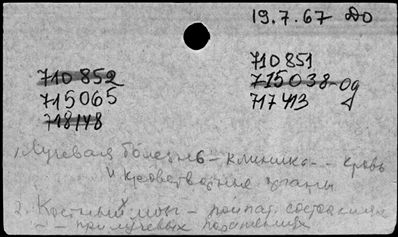 19.7.67 До
710852
715065
718148
710851
715038-од
717413
1. Лучевая болезнь - клиника - кровь
и кроветворные органы
2. Костный мозг - при пат. состояниях
- при лучевых поражениях